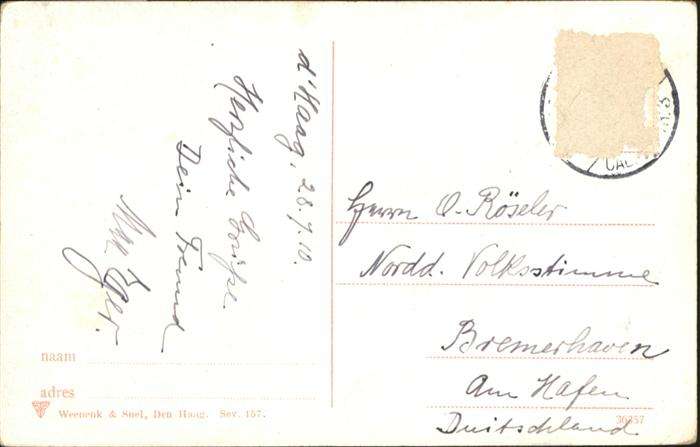 d'Haag, 28.7.10.
Herzliche Grüße
Dein Freund
Max
Herrn O. Röseler
Nordd. Volksstimme
Bremerhaven
Am Hafen
Duitschland
naam
adres
Weenenk & Snel, Den Haag. Sev. 157.
36357